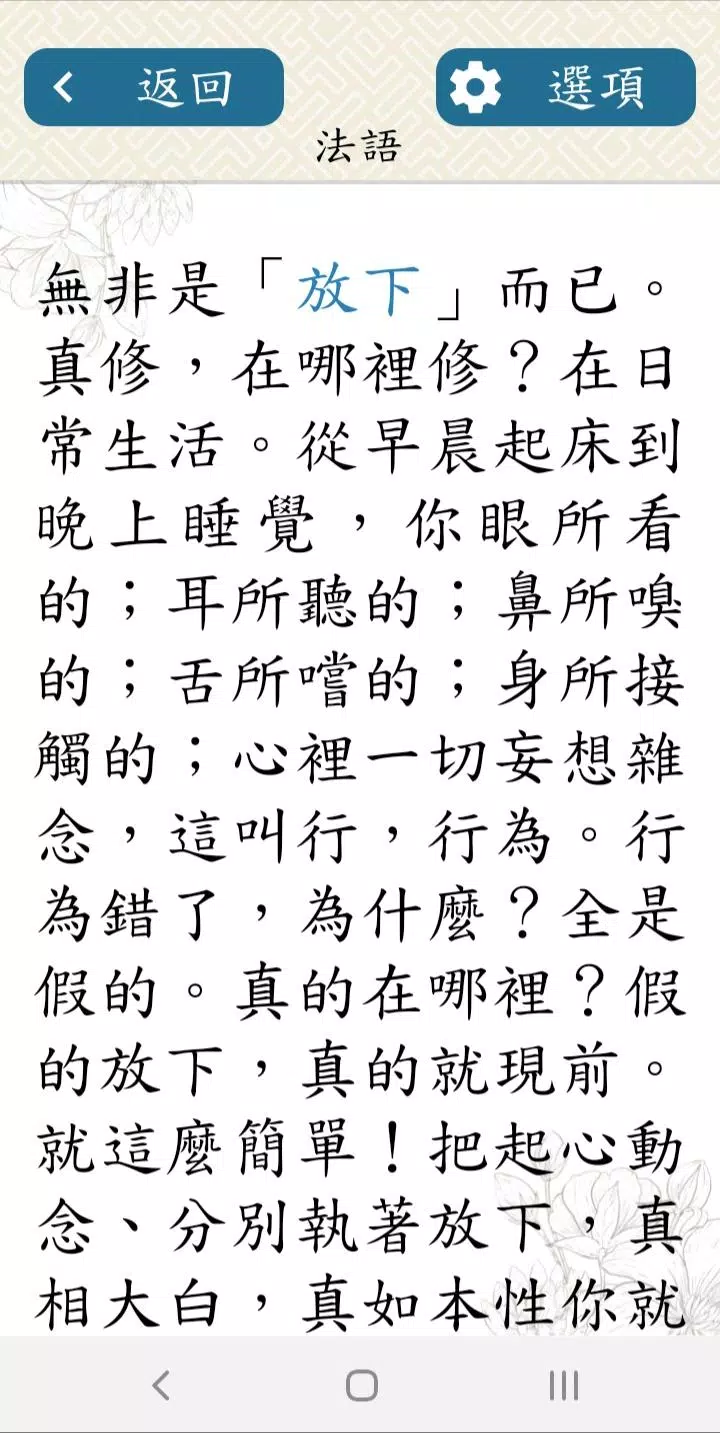 返回
選項
法語
無非是「放下」而已。
真修，在哪裡修？在日
常生活。從早晨起床到
晚上睡覺，你眼所看
的；耳所聽的；鼻所嗅
的；舌所嚐的；身所接
觸的；心裡一切妄想雜
念，這叫行，行為。行
為錯了，為什麼？全是
假的。真的在哪裡？假
的放下，真的就現前。
就這麼簡單！把起心動
念、分別執著放下，真
相大白，真如本性你就